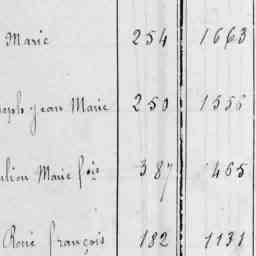 Marie 254 1663
seph Jean Marie 250 1556
ulien Marie fçois 387 1465
René françois 182 1131